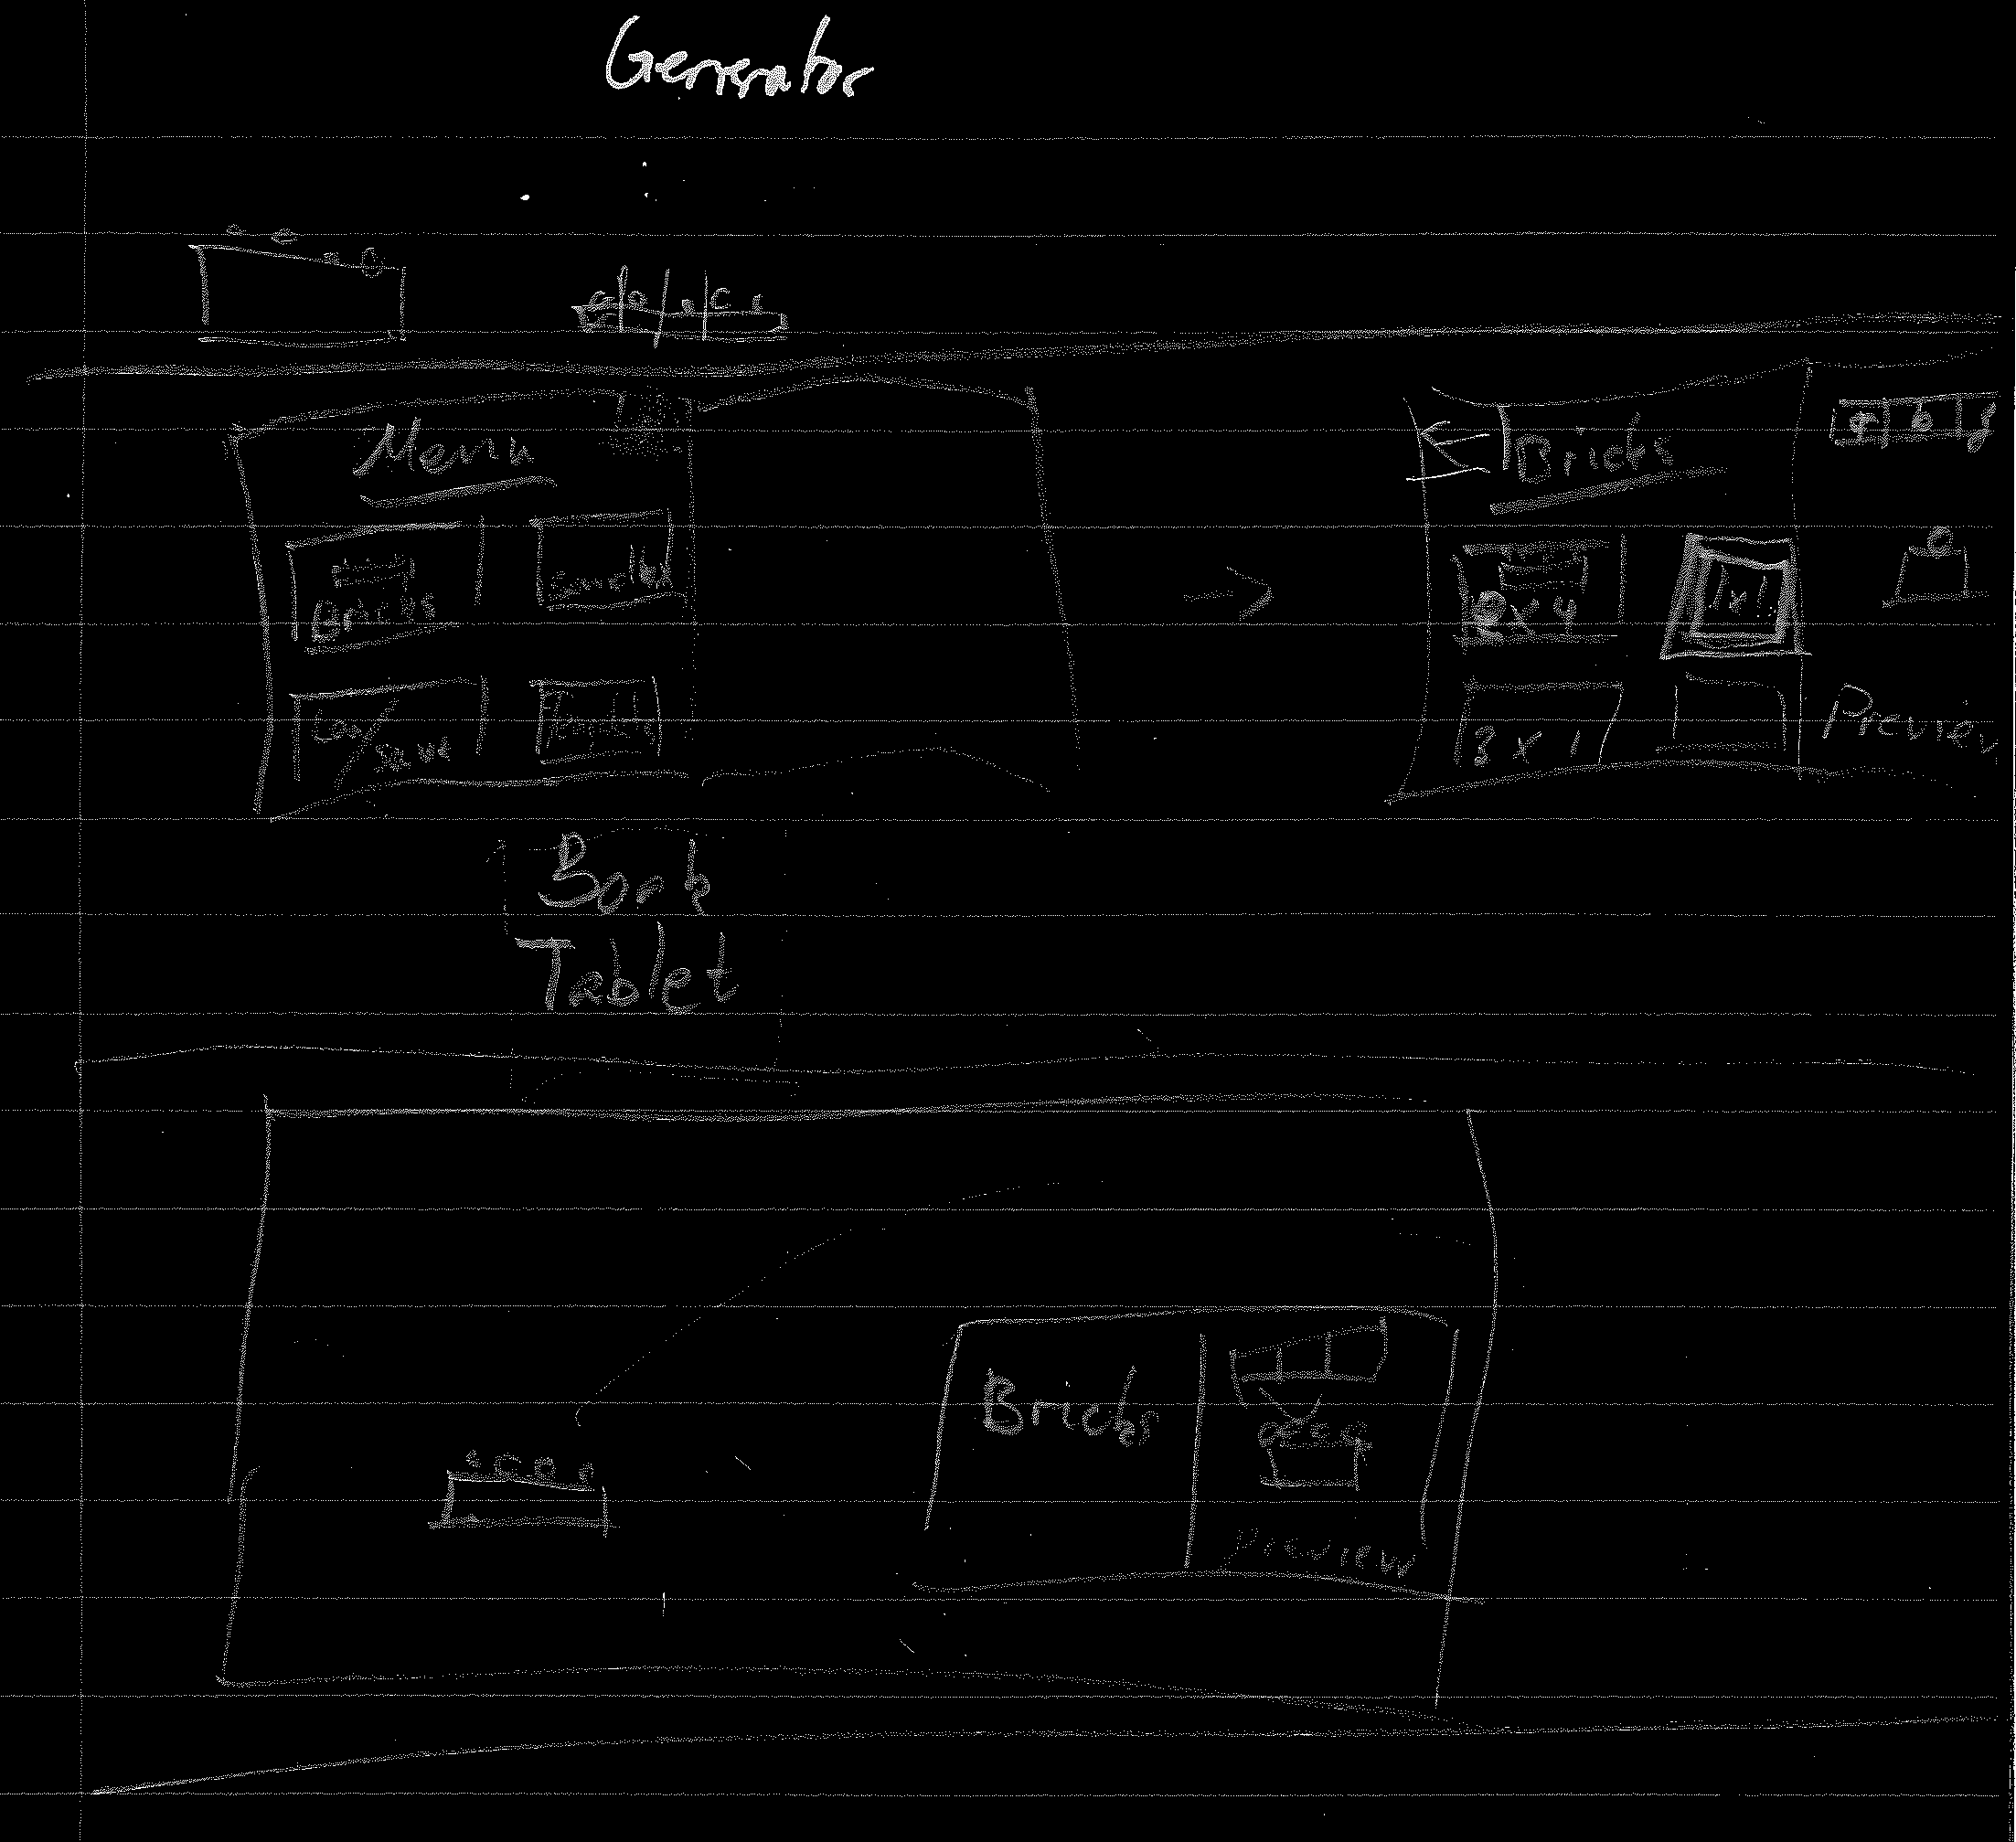 Generator
Menu
Bricks
Save
Bricks
2 x 4
1 x 1
3 x 1
Preview
Book
Tablet
Bricks
Preview